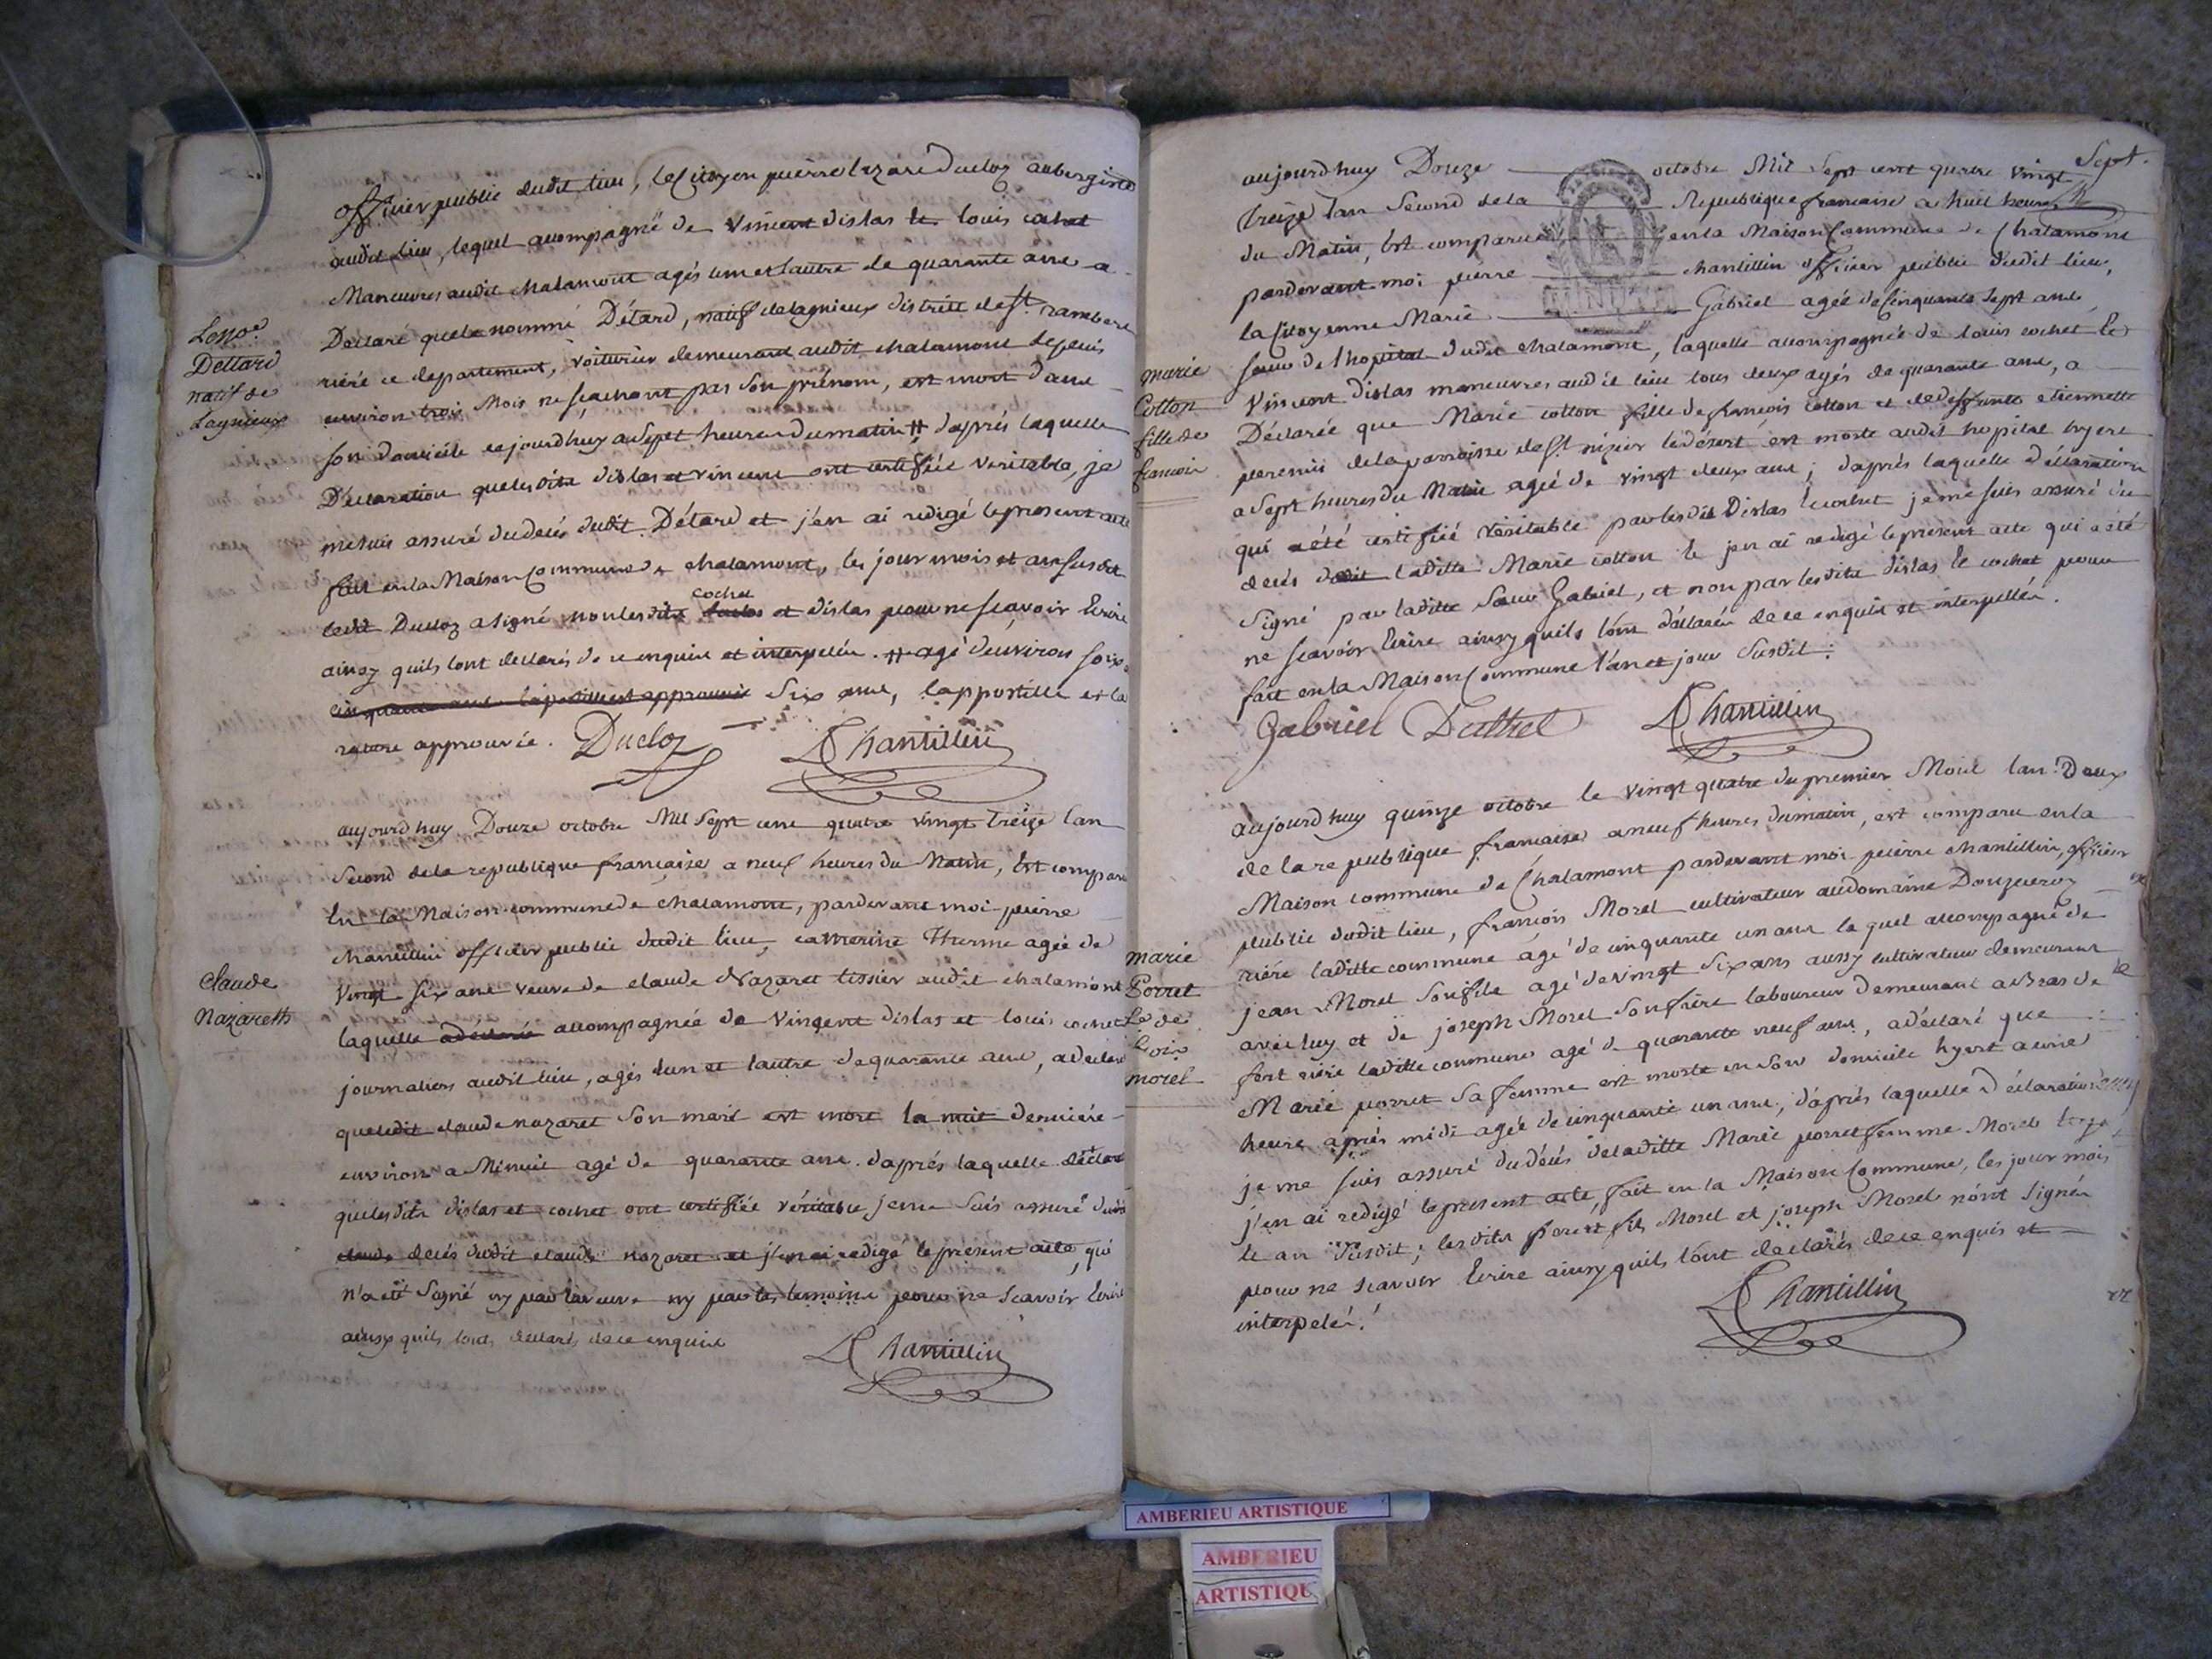 officier public dudit lieu, le Citoyen pierre lazare Ducloz aubergiste
audit lieu, lequel accompagné de Vincent dislas et louis cochet
Manœuvres audit chalamont agés l'un et l'autre de quarante ans a
Déclaré que le nommé Détard, natif de lagnieux district de St. rambert
riére ce departement, voiturier demeurant audit chalamont depuis
environ trois Mois ne sçachant pas son prénom, est mort dans
son domicile cejourdhuy a Sept heures du matin # daprés laquelle
Déclaration que lesdits dislas et vincent ont certifiée veritable, je
me suis assuré du decés dudit Détard et j'en ai redigé le present acte
fait en la Maison Commune de chalamont, les jour mois et an susdit
ledit Ducloz a signé non lesdits cochet et dislas pour ne scavoir Ecrire
ainsy quils l'ont declarés de ce enquis et interpellés. # agé d'environ soix.
cinquante ans l'apostille est approuvée Six ans, lappostille et la
rature approuvée. Ducloz Chantillin
Dettard
natif de
Lagnieux
aujourdhuy Douze octobre Mil Sept cent quatre vingt treize lan
Second de la republique française a neuf heures du Matin, Est comparu
En la Maison commune de chalamont, pardevant moi pierre
chantillin officier public dudit lieu, catherine Therme agée de
Vingt six ans veuve de claude Nazaret tissier audit chalamont
laquelle a declaré accompagnée de Vincent dislas et louis cochet
journaliers audit lieu, agés l'un et lautre de quarante ans, a declaré
que ledit claude nazaret son mari est mort la nuit derniére
environ a Minuit agé de quarante ans. daprés laquelle déclar
que lesdits dislas et cochet ont certifiée véritable je me suis assuré du
claude decés dudit claude nazaret et j'en ai redigé le present acte, qui
n'a été Signé ny par la veuve ny par les temoins pour ne scavoir Ecrire
ainsy quils l'ont declarés de ce enquis Chantillin
claude
Nazareth
Sept.
aujourdhuy Douze octobre Mil Sept cent quatre vingt
treize lan Second de la Republique francaise a huit heures
du Matin, Est comparue en la Maison Commune de Chalamont
pardevant moi pierre chantillin officier public dudit lieu,
la Citoyenne Marie Gabriel agée de Cinquante Sept ans
sœur de l'hopital dudit chalamont, laquelle accompagnée de louis cochet Et
Vincent dislas manœuvres audit lieu tous deux agés de quarante ans, a
Déclarée que Marie cotton fille de françois cotton et de deffunte etiennette
de la parroisse de St nizier le désert est morte audit hopital hyert
a Sept heures du Matin agée de vingt deux ans; daprés laquelle déclaration
qui a été certifiée véritable par lesdits Dislas Et cochet je me suis assuré du
decés dudit laditte Marie cotton Et j'en ai redigé le present acte qui a été
Signé par laditte Sœur Gabriel, et non par lesdits dislas Et cochet pour
ne scavoir Ecrire ainsy quils l'ont déclarés de ce enquis et interpellés.
fait en la Maison Commune l'an et jour Susdit.
Gabriel Duthel Chantillin
marie
Cotton
fille de
francois
aujourdhuy quinze octobre le vingt quatre du premier Mois lan Deux
de la republique francaise a neuf heures du matin, est comparu en la
Maison commune de Chalamont pardevant moi pierre chantillin, officier
public dudit lieu, françois Morel cultivateur au domaine
riére laditte commune agé de cinquante un ans lequel accompagné de
jean Morel Son fils agé de vingt Six ans aussy cultivateur demeurant
avec luy et de joseph Morel Son frére laboureur demeurant a Bras de
fert riére laditte commune agé de quarante neuf ans, a déclaré que
Marie porret Sa femme est morte en Son domicile hyert a une
heure aprés midi agée de cinquante un ans, d'aprés laquelle déclaration
je me suis assuré du décés de laditte Marie porret femme Morel
j'en ai redigé le present acte, fait en la Maison Commune, les jour mois
et an Susdit; lesdits pere et fils Morel et joseph Morel n'ont Signés
pour ne scavoir Ecrire ainsy quils l'ont declarés de ce enquis et
interpelés. Chantillin
marie
Porret
morel
AMBERIEU ARTISTIQUE
AMBERIEU
ARTISTIQUE